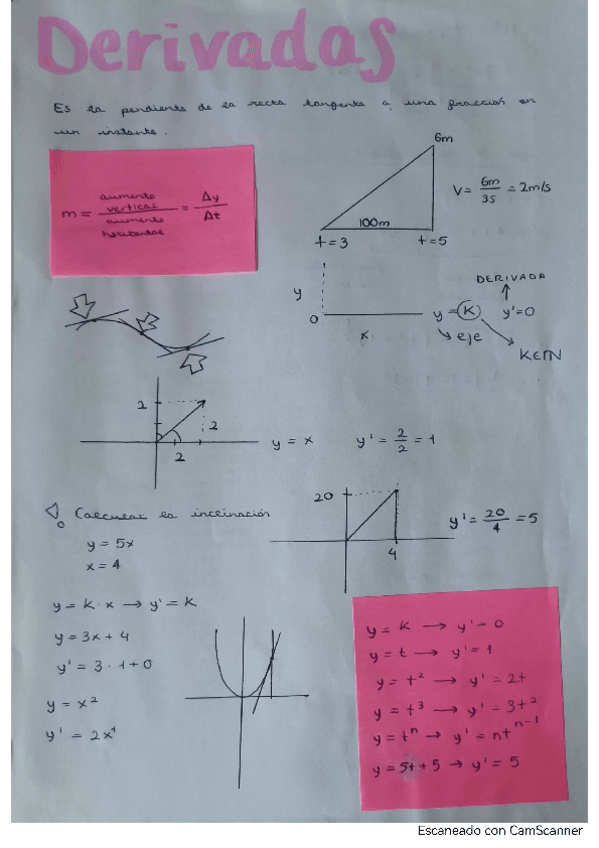 Derivadas
Es la pendiente de la recta tangente a una fracción en
un instante.
m = aumento vertical / aumento horizontal = Δy / Δt
6m
100m
t=3
t=5
V = 6m/3s = 2m/s
y
0
x
y = K
y'=0
DERIVADA
eje
KEIN
2
2
2
y = x
y' = 2/2 = 1
Calcular la inclinación
y = 5x
x = 4
20
4
y' = 20/4 = 5
y = K·x → y' = K
y = 3x + 4
y' = 3·1+0
y = x²
y' = 2x¹
y = K → y' = 0
y = t → y' = 1
y = t² → y' = 2t
y = t³ → y' = 3t²
y = tⁿ → y' = ntⁿ⁻¹
y = 5t + 5 → y' = 5
Escaneado con CamScanner